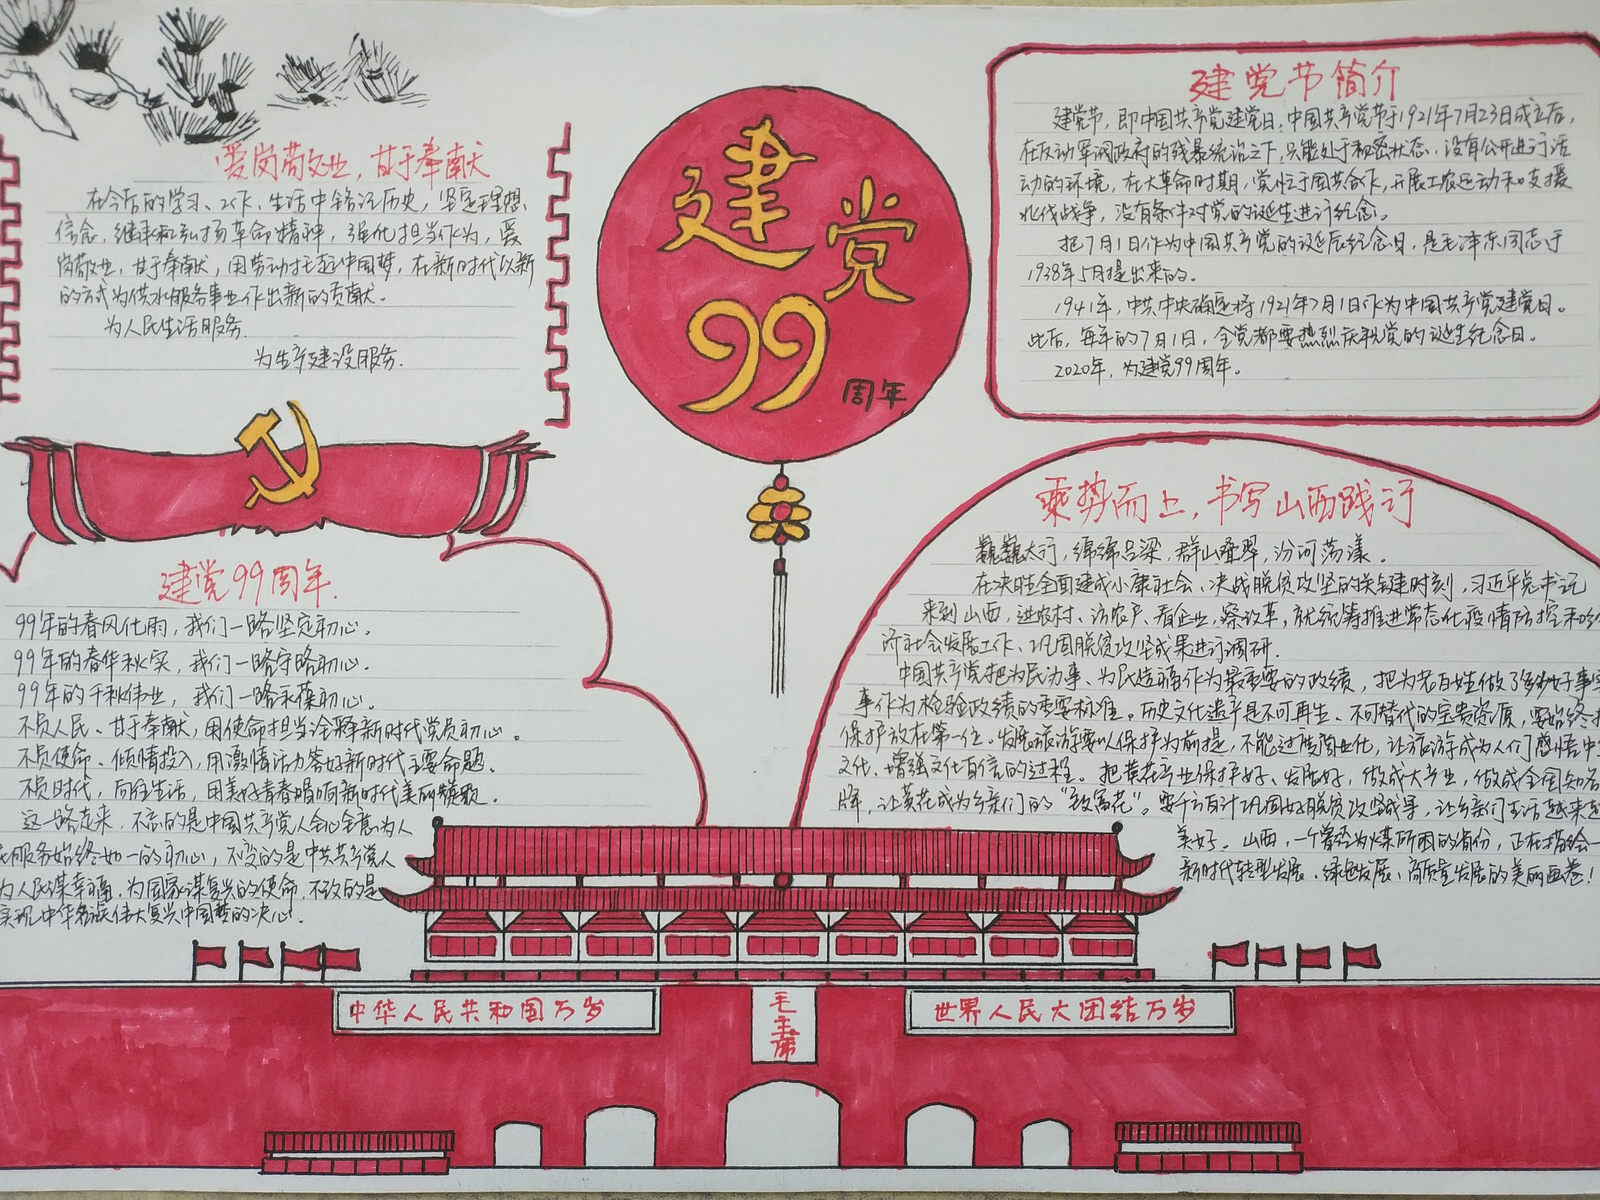 爱岗敬业,甘于奉献
在今后的学习、工作、生活中铭记历史,坚定理想、
信念,继承和弘扬革命精神,强化担当作为,爱
岗敬业,甘于奉献,用劳动托起中国梦,在新时代以新
的方式为供水服务事业作出新的贡献。
为人民生活服务.
为生产建设服务.
建党
99
周年
建党节简介
建党节,即中国共产党建党日.中国共产党节于1921年7月23日成立后,
在反动军阀政府的残暴统治之下,只能处于秘密状态.没有公开进行活
动的环境,在大革命时期,党忙于国共合作,开展工农运动和支援
北伐战争,没有条件对党的诞生进行纪念。
把7月1日作为中国共产党的诞辰纪念日,是毛泽东同志于
1938年5月提出来的。
1941年,中共中央确定将1921年7月1日作为中国共产党建党日。
此后,每年的7月1日,全党都要热烈庆祝党的诞生纪念日.
2020年,为建党99周年。
建党99周年.
99年的春风化雨,我们一路坚定初心.
99年的春华秋实,我们一路守路初心.
99年的千秋伟业,我们一路永葆初心.
不负人民、甘于奉献,用使命担当诠释新时代党员初心。
不负使命、倾情投入,用激情活力答好新时代主要命题。
不负时代,向往生活,用美好青春唱响新时代美丽赞歌.
这一路走来,不忘的是中国共产党人全心全意为人
民服务始终如一的初心,不变的是中共共产党人
为人民谋幸福.为国家谋复兴的使命.不改的是
实现中华名族伟大复兴中国梦的决心.
乘势而上,书写山西践行
巍巍太行,绵绵吕梁,群山叠翠,汾河荡漾.
在决胜全面建成小康社会、决战脱贫攻坚的关键时刻,习近平总书记
来到山西,进农村、访农户、看企业,察改革,就统筹推进常态化疫情防控和
济社会发展工作、巩固脱贫攻坚成果进行调研.
中国共产党把为民办事、为民造福作为最重要的政绩,把为老百姓做了多少好事实
事作为检验政绩的重要标准。历史文化遗产是不可再生、不可替代的宝贵资源,要始终
保护放在第一位。发展旅游要以保护为前提,不能过度商业化,让旅游成为人们感悟中
文化、增强文化自信的过程。把黄花产业保护好、发展好,做成大产业,做成全国知名
牌,让黄花成为乡亲们的“致富花”。要千方百计巩固好脱贫攻坚成果,让乡亲们生活越来越
美好.山西,一个曾经为煤所困的省份,正在描绘一
新时代转型发展、绿色发展、高质量发展的美丽画卷!
中华人民共和国万岁
毛主席
世界人民大团结万岁